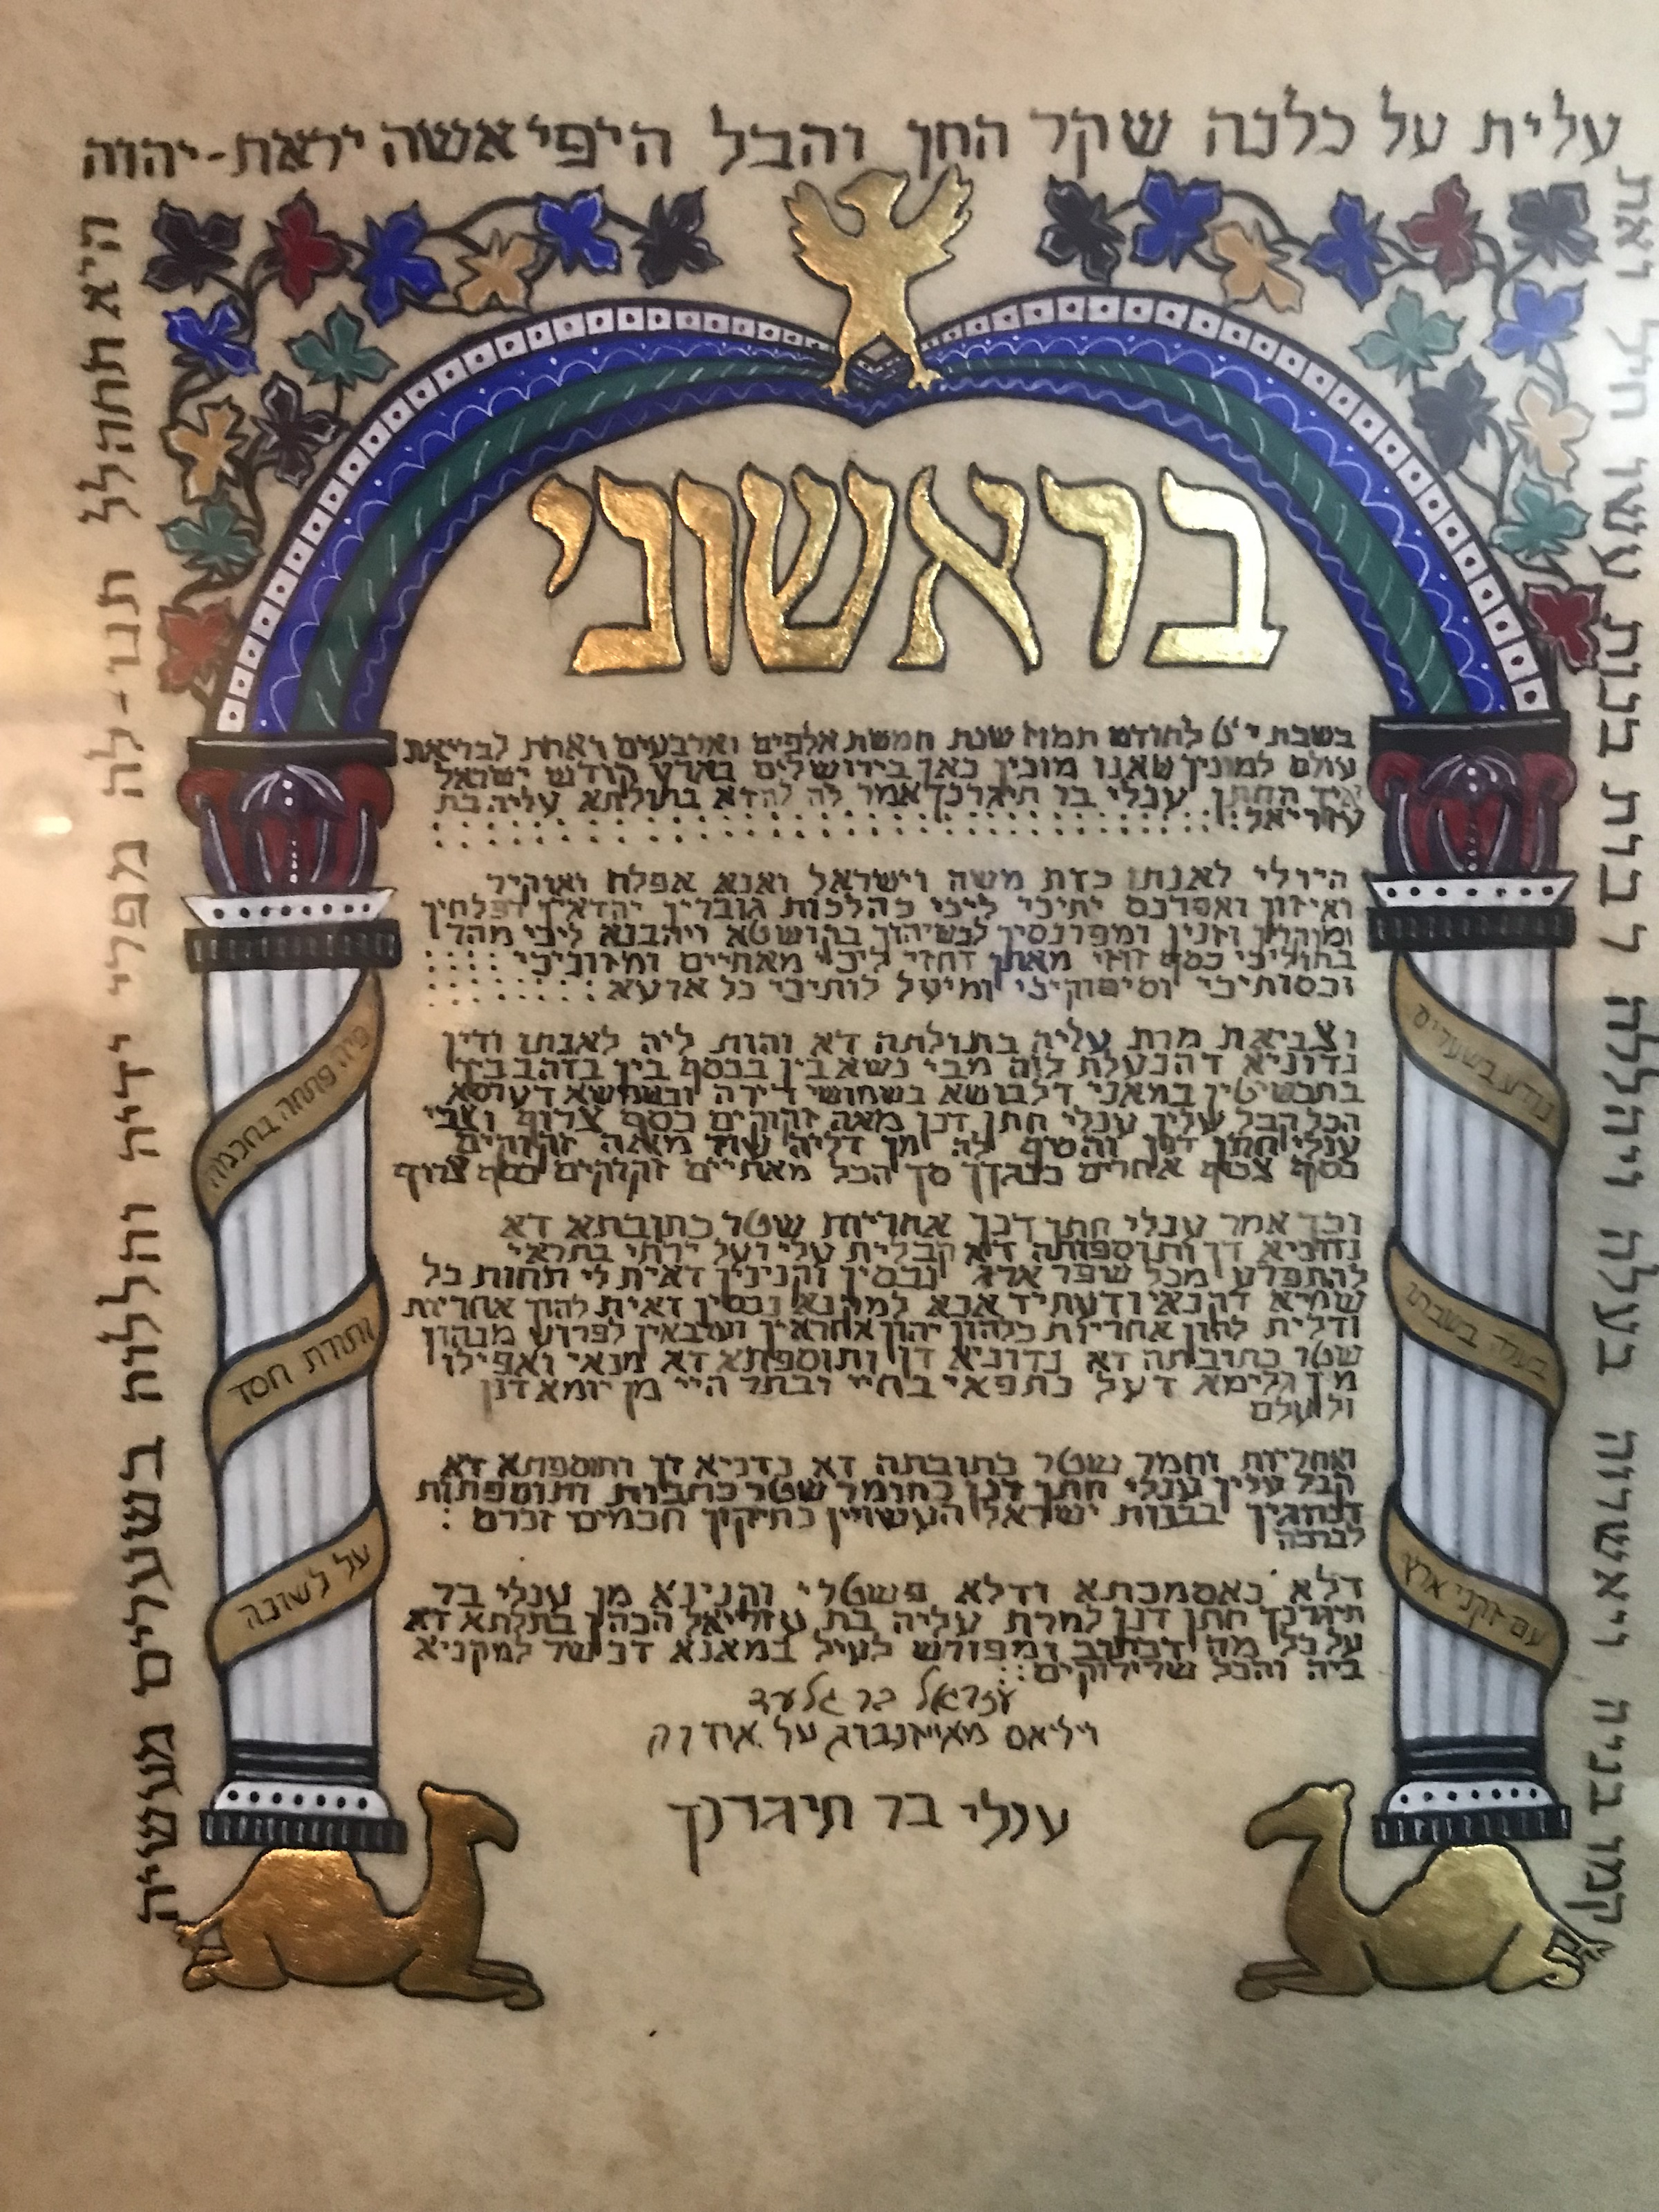 עלית על כלנה שקר החן והבל היפי אשה יראת-יהוה
היא תתהלל תנו-לה מפרי ידיה והללוה בשערים מעשיה
קמו בניה ויאשרוה בעלה ויהללה רבות בנות עשו חיל ואת
בראשוני
בשבת לחודש תמוז שנת חמשת אלפים וארבעים ואחת לבריאת
עולם למנין שאנו מונין כאן בירושלים בארץ קודש ישראל
איך החתן ענלי בר תיגרנך אמר לה להדא בתולתא עליה בת
עזריאל
הוי לי לאנתו כדת משה וישראל ואנא אפלח ואוקיר
ואיזון ואפרנס יתיכי ליכי כהלכות גוברין יהודאין דפלחין
ומוקרין וזנין ומפרנסין לנשיהון בקושטא ויהבנא ליכי מהר
בתוליכי כסף זוזי מאתן דחזי ליכי מאתיים ומזוניכי
וכסותיכי וסיפוקיכי ומיעל לותיכי כל ארעא
וצביאת מרת עליה בתולתה דא והות ליה לאנתו ודין
נדוניא דהנעלת לוה מבי נשא בין בכסף בין בזהב בין
בתכשיטין במאני דלבושא בשמושי דירה ובשמשא דערסא
הכל קבל עליו ענלי חתן דנן מאה זקוקים כסף צרוף וצבי
ענלי חתן דנן והסיף לה מן דליה עוד מאה זקוקים
כסף צרוף אחרים כנגדן סך הכל מאתיים זקוקים כסף צרוף
וכך אמר ענלי חתן דנן אחריות שטר כתובתא דא
נדוניא דן ותוספותה דא קבלית עלי ועל ירתי בתראי
להתפרע מכל שפר ארג נכסין וקנינין דאית לי תחות כל
שמיא דקנאי ודעתיד אנא למקנא נכסין דאית להון אחריות
ודלית להון אחריות כלהון יהון אחראין וערבאין לפרוע מנהון
שטר כתובתה דא נדוניא דן ותוספתא דא מנאי ואפילו
מין גלימא דעל כתפאי בחיי ובתר היי מן יומא דנן
ולעלם
ואחריות וחמר שטר כתובתה דא נדניא דן ותוספתא דא
קבל עליו ענלי חתן דנן כחומר שטר כתבות ותוספתות
דנהגין בבנות ישראל העשויין כתיקון חכמים זכרם :
לברכה
דלא כאסמכתא ודלא וקנינא מן ענלי בר
תיגרנך חתן דנן למרת עליה בת עזריאל הכהן בתלתא דא
על כל מה דכתוב ומפורש לעיל במאנא דכשר למקניא
ביה והכל שרירוקים
עזראל בר גלעד
ויליאם
ענלי בר תיגרנך
פיה פתחה בחכמה
ותורת חסד
על לשונה
נודע בשערים
בעלה בשבתו
עם זקני ארץ